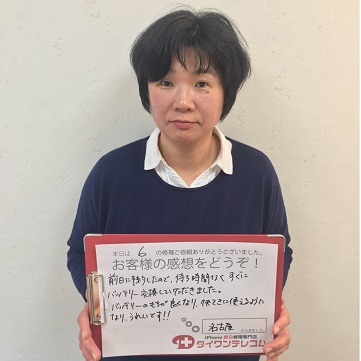 本日は 6 の修理ご依頼ありがとうございました。
お客様の感想をどうぞ！
前日に予約したので、待ち時間なくすぐに
バッテリー交換していただきました。
バッテリーのもちが良くなり、快てきに使えるように
なり、うれしいです!!
名古屋
iPhone 即日修理専門店
ダイワンテレコム